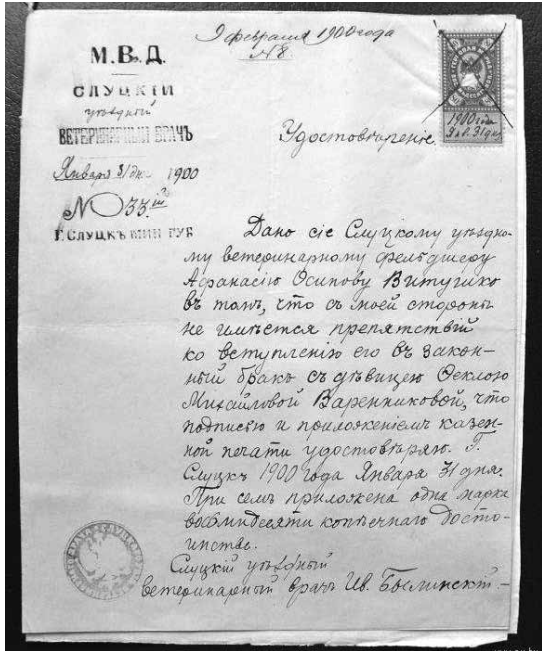 9 февраля 1900 года
№ 8
М.В.Д.
СЛУЦКІЙ
уѣздный
ВЕТЕРИНАРНЫЙ ВРАЧЪ
Января 31 дня 1900
№ 33
Г. СЛУЦКЪ МИН. ГУБ.
1900 года
Янв. 31 дня
Удостовѣреніе
Дано сіе Слуцкому уѣздно-
му ветеринарному фельдшеру
Афанасію Осипову Витушко
въ томъ, что съ моей стороны
не имѣется препятствій
ко вступленію его въ закон-
ный бракъ съ дѣвицею Ѳеклою
Михайловой Варенниковой, что
подписью и приложеніемъ казен-
ной печати удостовѣряю. Г.
Слуцкъ 1900 года Января 31 дня.
При семъ приложена одна марка
восмидесяти копѣечнаго досто-
инства.
Слуцкій уѣздный
ветеринарный врачъ Ив. Былинскій